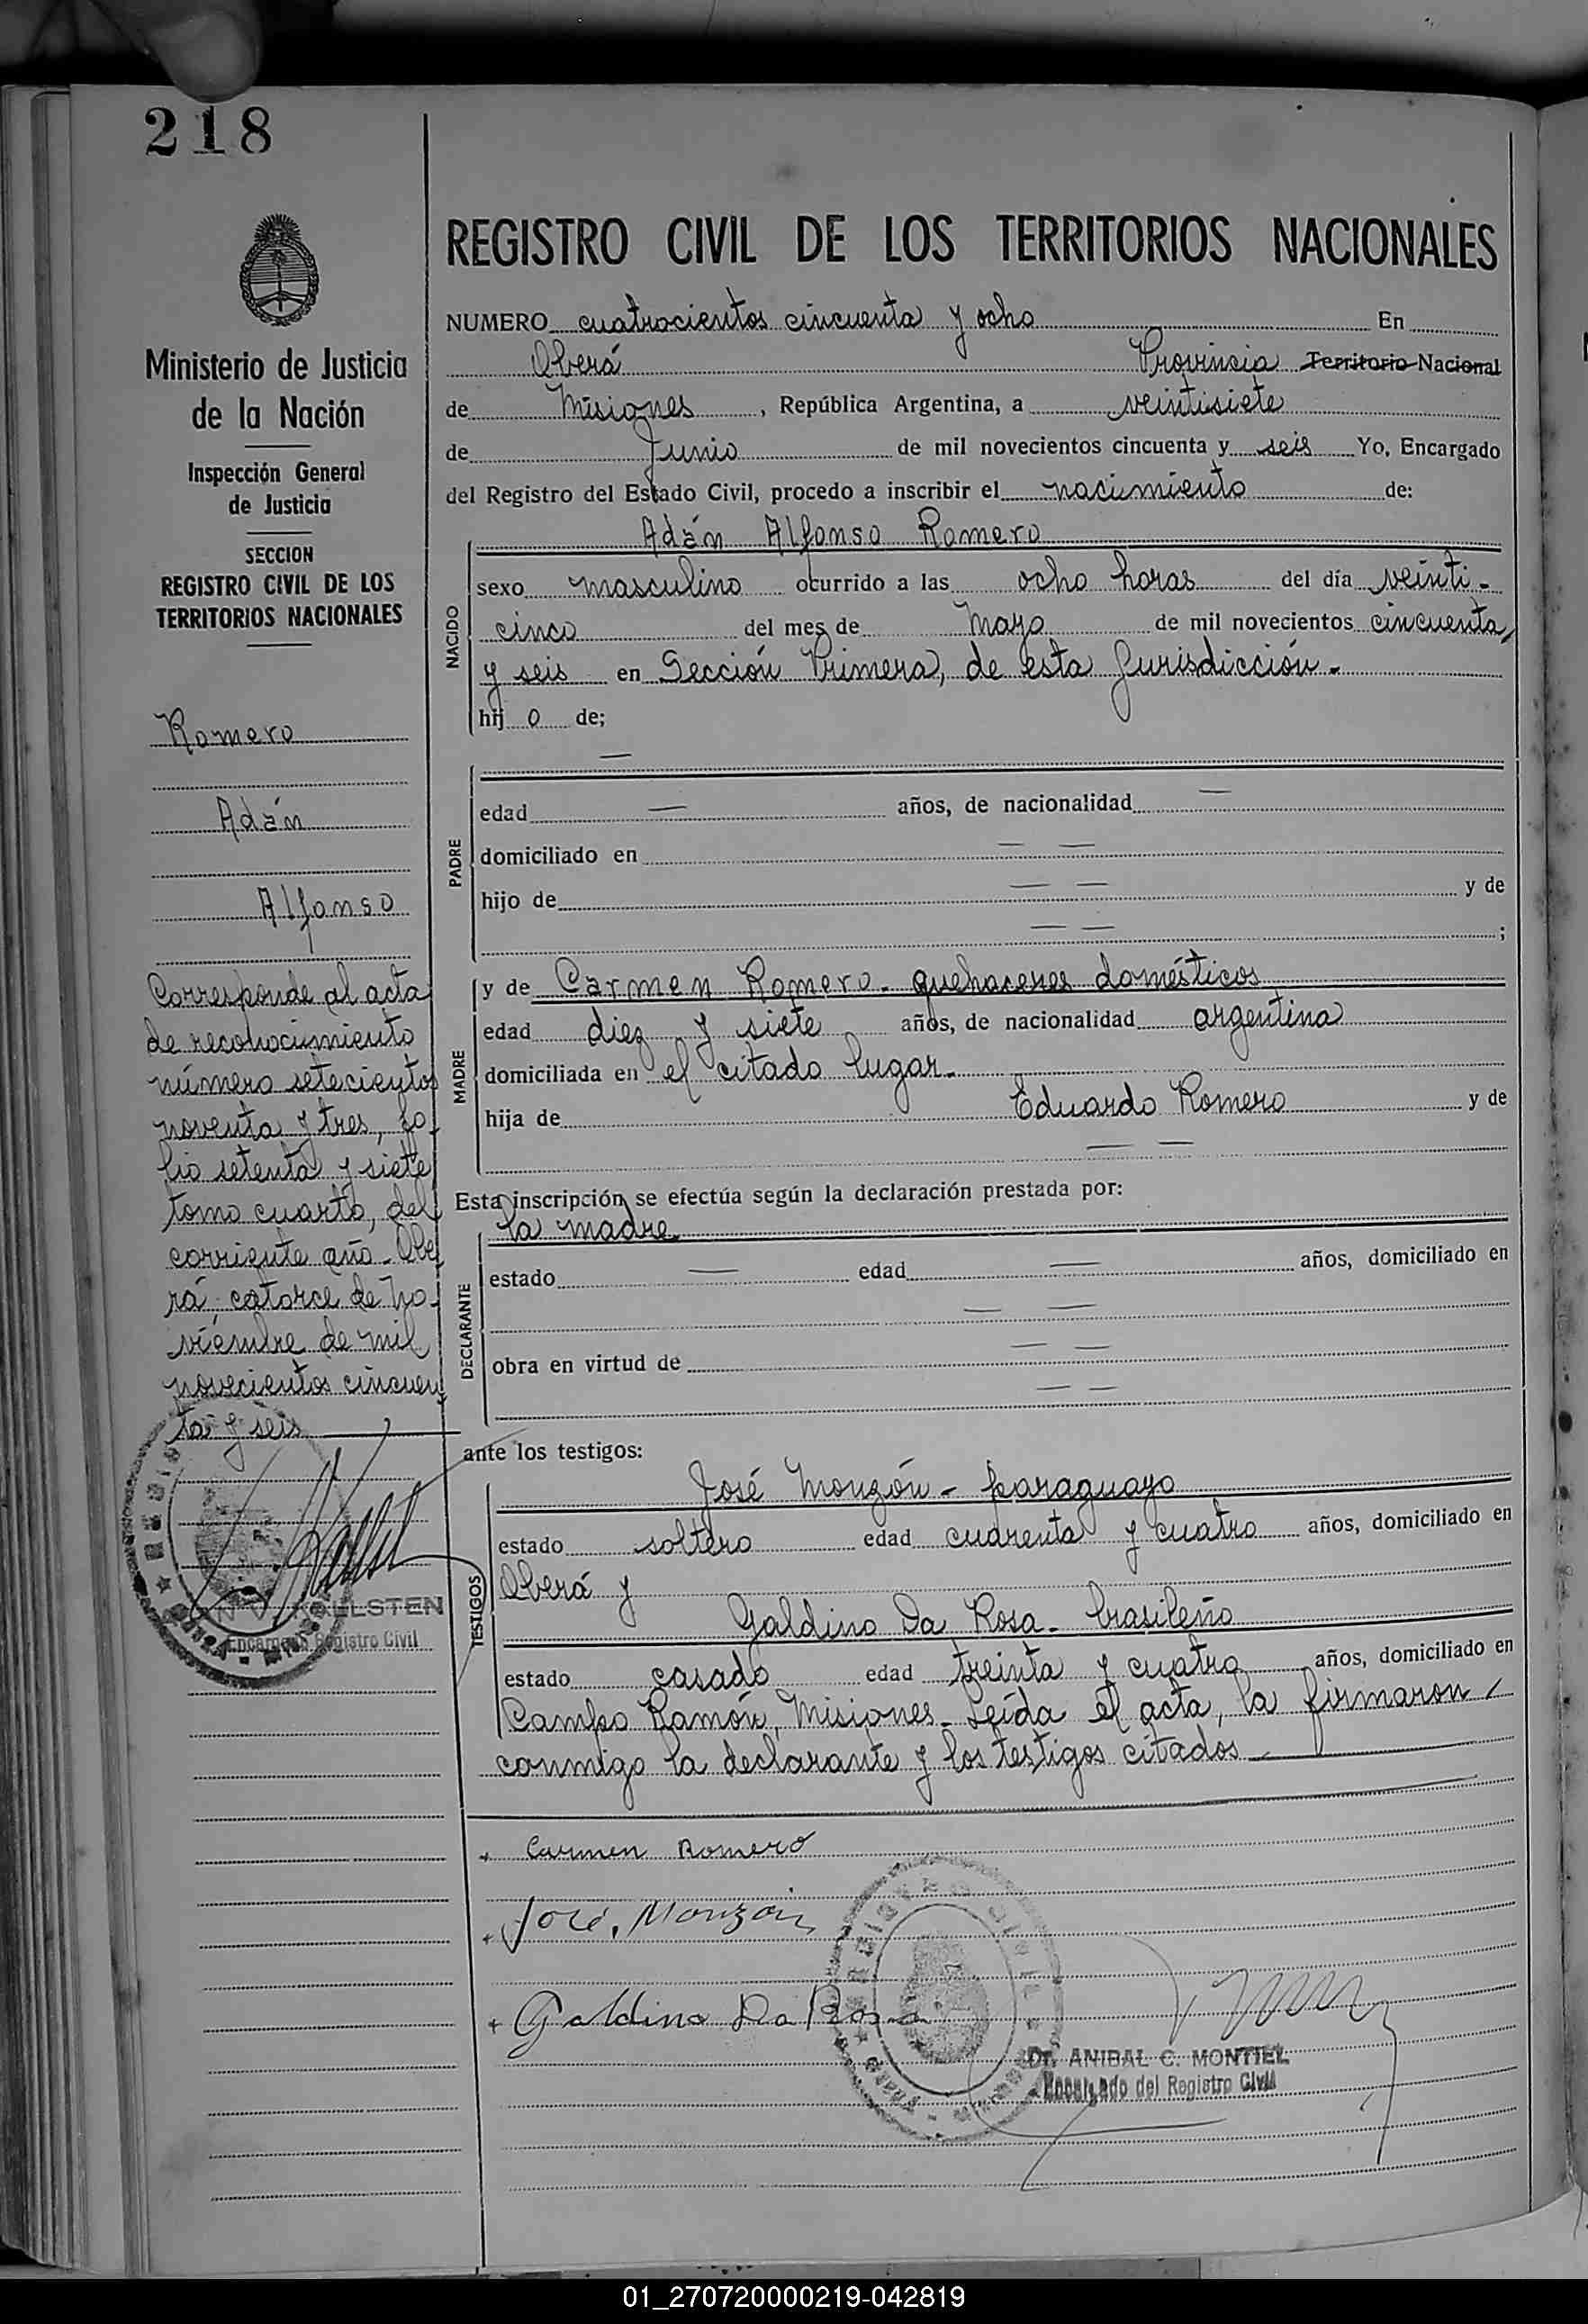 218
Ministerio de Justicia
de la Nación
Inspección General
de Justicia
SECCION
REGISTRO CIVIL DE LOS
TERRITORIOS NACIONALES
Romero
Adán
Alfonso
Corresponde al acta
de reconocimiento
número setecientos
noventa y tres, fo-
lio setenta y siete
tomo cuarto, del
corriente año. Obe
rá, catorce de no-
viembre de mil
novecientos cincuen
ta y seis
KALLSTEN
Encargado Registro Civil
REGISTRO CIVIL DE LOS TERRITORIOS NACIONALES
NUMERO cuatrocientos cincuenta y ocho En
Oberá Provincia Territorio Nacional
de Misiones, República Argentina, a veintisiete
de Junio de mil novecientos cincuenta y seis Yo, Encargado
del Registro del Estado Civil, procedo a inscribir el nacimiento de:
Adán Alfonso Romero
NACIDO
sexo masculino ocurrido a las ocho horas del día veinti-
cinco del mes de Mayo de mil novecientos cincuenta
y seis en Sección Primera, de esta Jurisdicción.-
hij o de;
PADRE
—
edad — años, de nacionalidad —
domiciliado en — —
hijo de — — y de
— — ;
MADRE
y de Carmen Romero. quehaceres domésticos
edad diez y siete años, de nacionalidad argentina
domiciliada en el citado lugar.-
hija de Eduardo Romero y de
— —
Esta inscripción se efectúa según la declaración prestada por:
la madre
DECLARANTE
estado — edad — años, domiciliado en
— —
obra en virtud de — —
— —
ante los testigos:
TESTIGOS
José Monzón - paraguayo
estado soltero edad cuarenta y cuatro años, domiciliado en
Oberá y
Galdino Da Rosa. brasileño
estado casado edad treinta y cuatro años, domiciliado en
Campo Ramón, Misiones. Leída el acta, la firmaron
conmigo la declarante y los testigos citados
+ Carmen Romero
+ José, Monzón
+ Galdino Da Rosa
Dr. ANIBAL C. MONTIEL
Encargado del Registro Civil
01_270720000219-042819